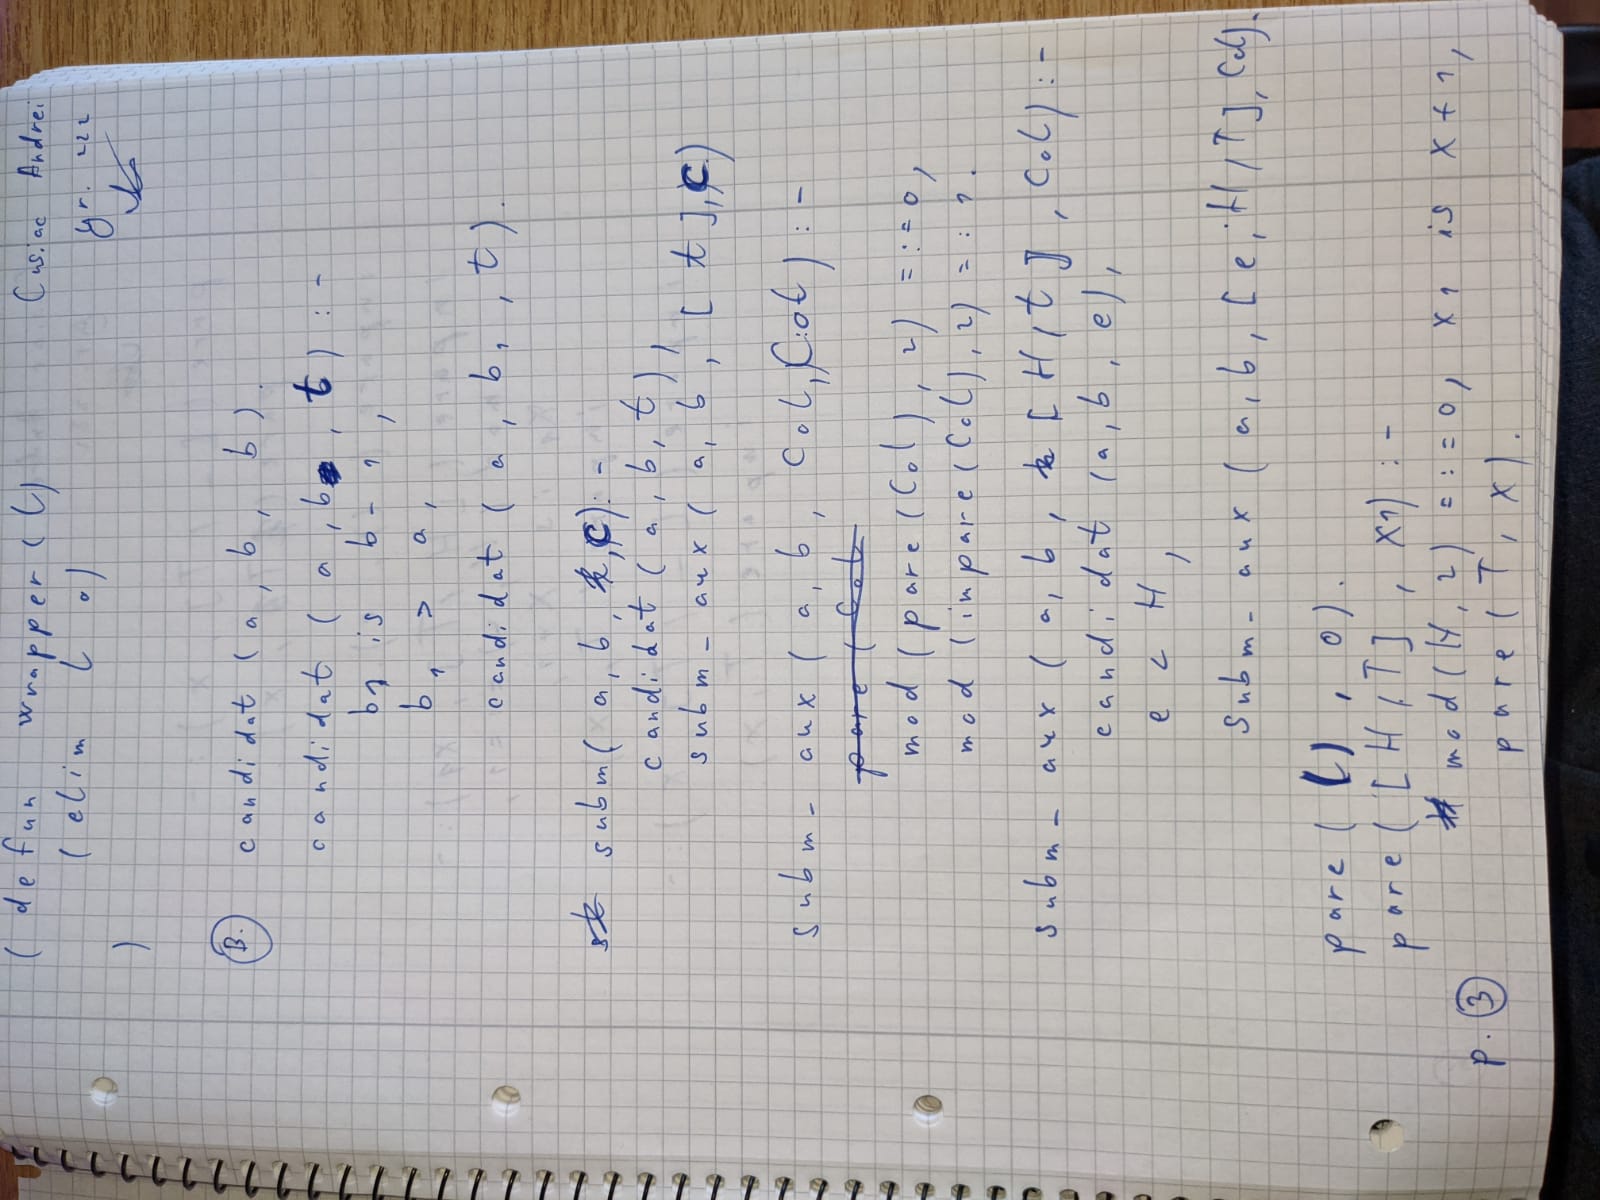 (defun wrapper(l) Cusiac Andrei
(elim l 0) gr. 222
)
B. candidat(a, b, b).
candidat(a, b, t) :-
b1 is b-1,
b1 > a,
candidat(a, b1, t).
subm(a, b, C) :-
candidat(a, b, t),
subm-aux(a, b, [t], C)
subm-aux(a, b, Col, Col) :-
pare(Col
mod(pare(Col), 2) =:= 0,
mod(impare(Col), 2) =:= 1.
subm-aux(a, b, [H|t], Col) :-
candidat(a, b, e),
e < H,
subm-aux(a, b, [e, H|T], Col).
pare([], 0).
pare([H|T], X1) :-
mod(H, 2) =:= 0, X1 is X+1,
pare(T, X).
p. 3